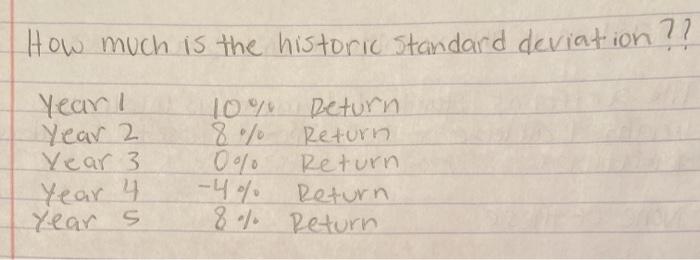 How much is the historic standard deviation ??
Year 1 10% Return
Year 2 8% Return
Year 3 0% Return
Year 4 -4% Return
Year 5 8% Return